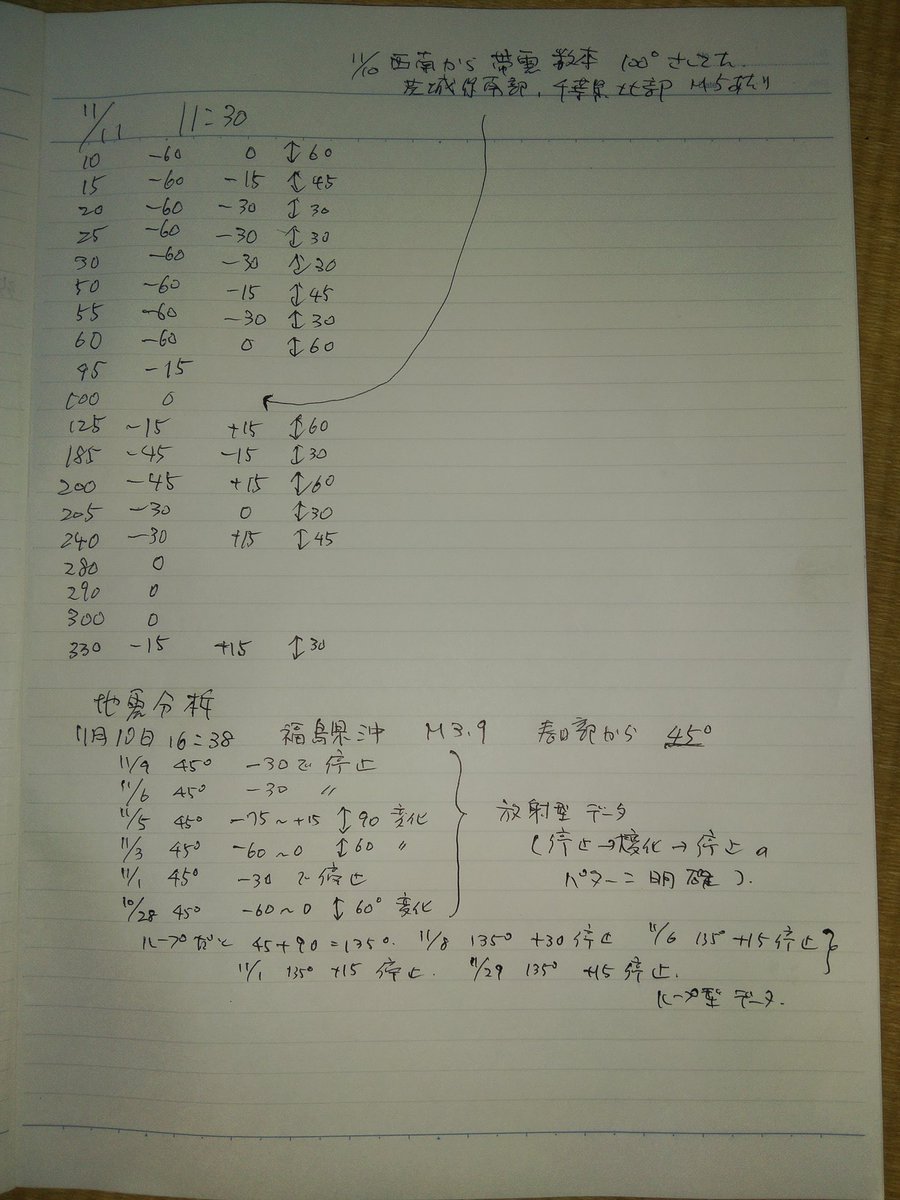 11/10 西南から 帯雲 数本 100° さしてた.
茨城県南部, 千葉県北部 M5あり
11/11 11:30
10 -60 0 ↕60
15 -60 -15 ↕45
20 -60 -30 ↕30
25 -60 -30 ↕30
30 -60 -30 ↕30
50 -60 -15 ↕45
55 -60 -30 ↕30
60 -60 0 ↕60
95 -15
100 0
125 -15 +15 ↕60
185 -45 -15 ↕30
200 -45 +15 ↕60
205 -30 0 ↕30
240 -30 +15 ↕45
280 0
290 0
300 0
330 -15 +15 ↕30
地震分析
11月10日 16:38 福島県沖 M3.9 春日部から 45°
11/9 45° -30で停止
11/6 45° -30 〃
11/5 45° -75~+15 ↕90 変化
11/3 45° -60~0 ↕60 〃
11/1 45° -30 で停止
10/28 45° -60~0 ↕60° 変化
放射型 データ
(停止→変化→停止の
パターン明確).
ループだと 45+90=135°. 11/8 135° +30 停止 11/6 135° +15 停止
11/1 135° +15 停止. 11/29 135° +15 停止.
ループ型データ.